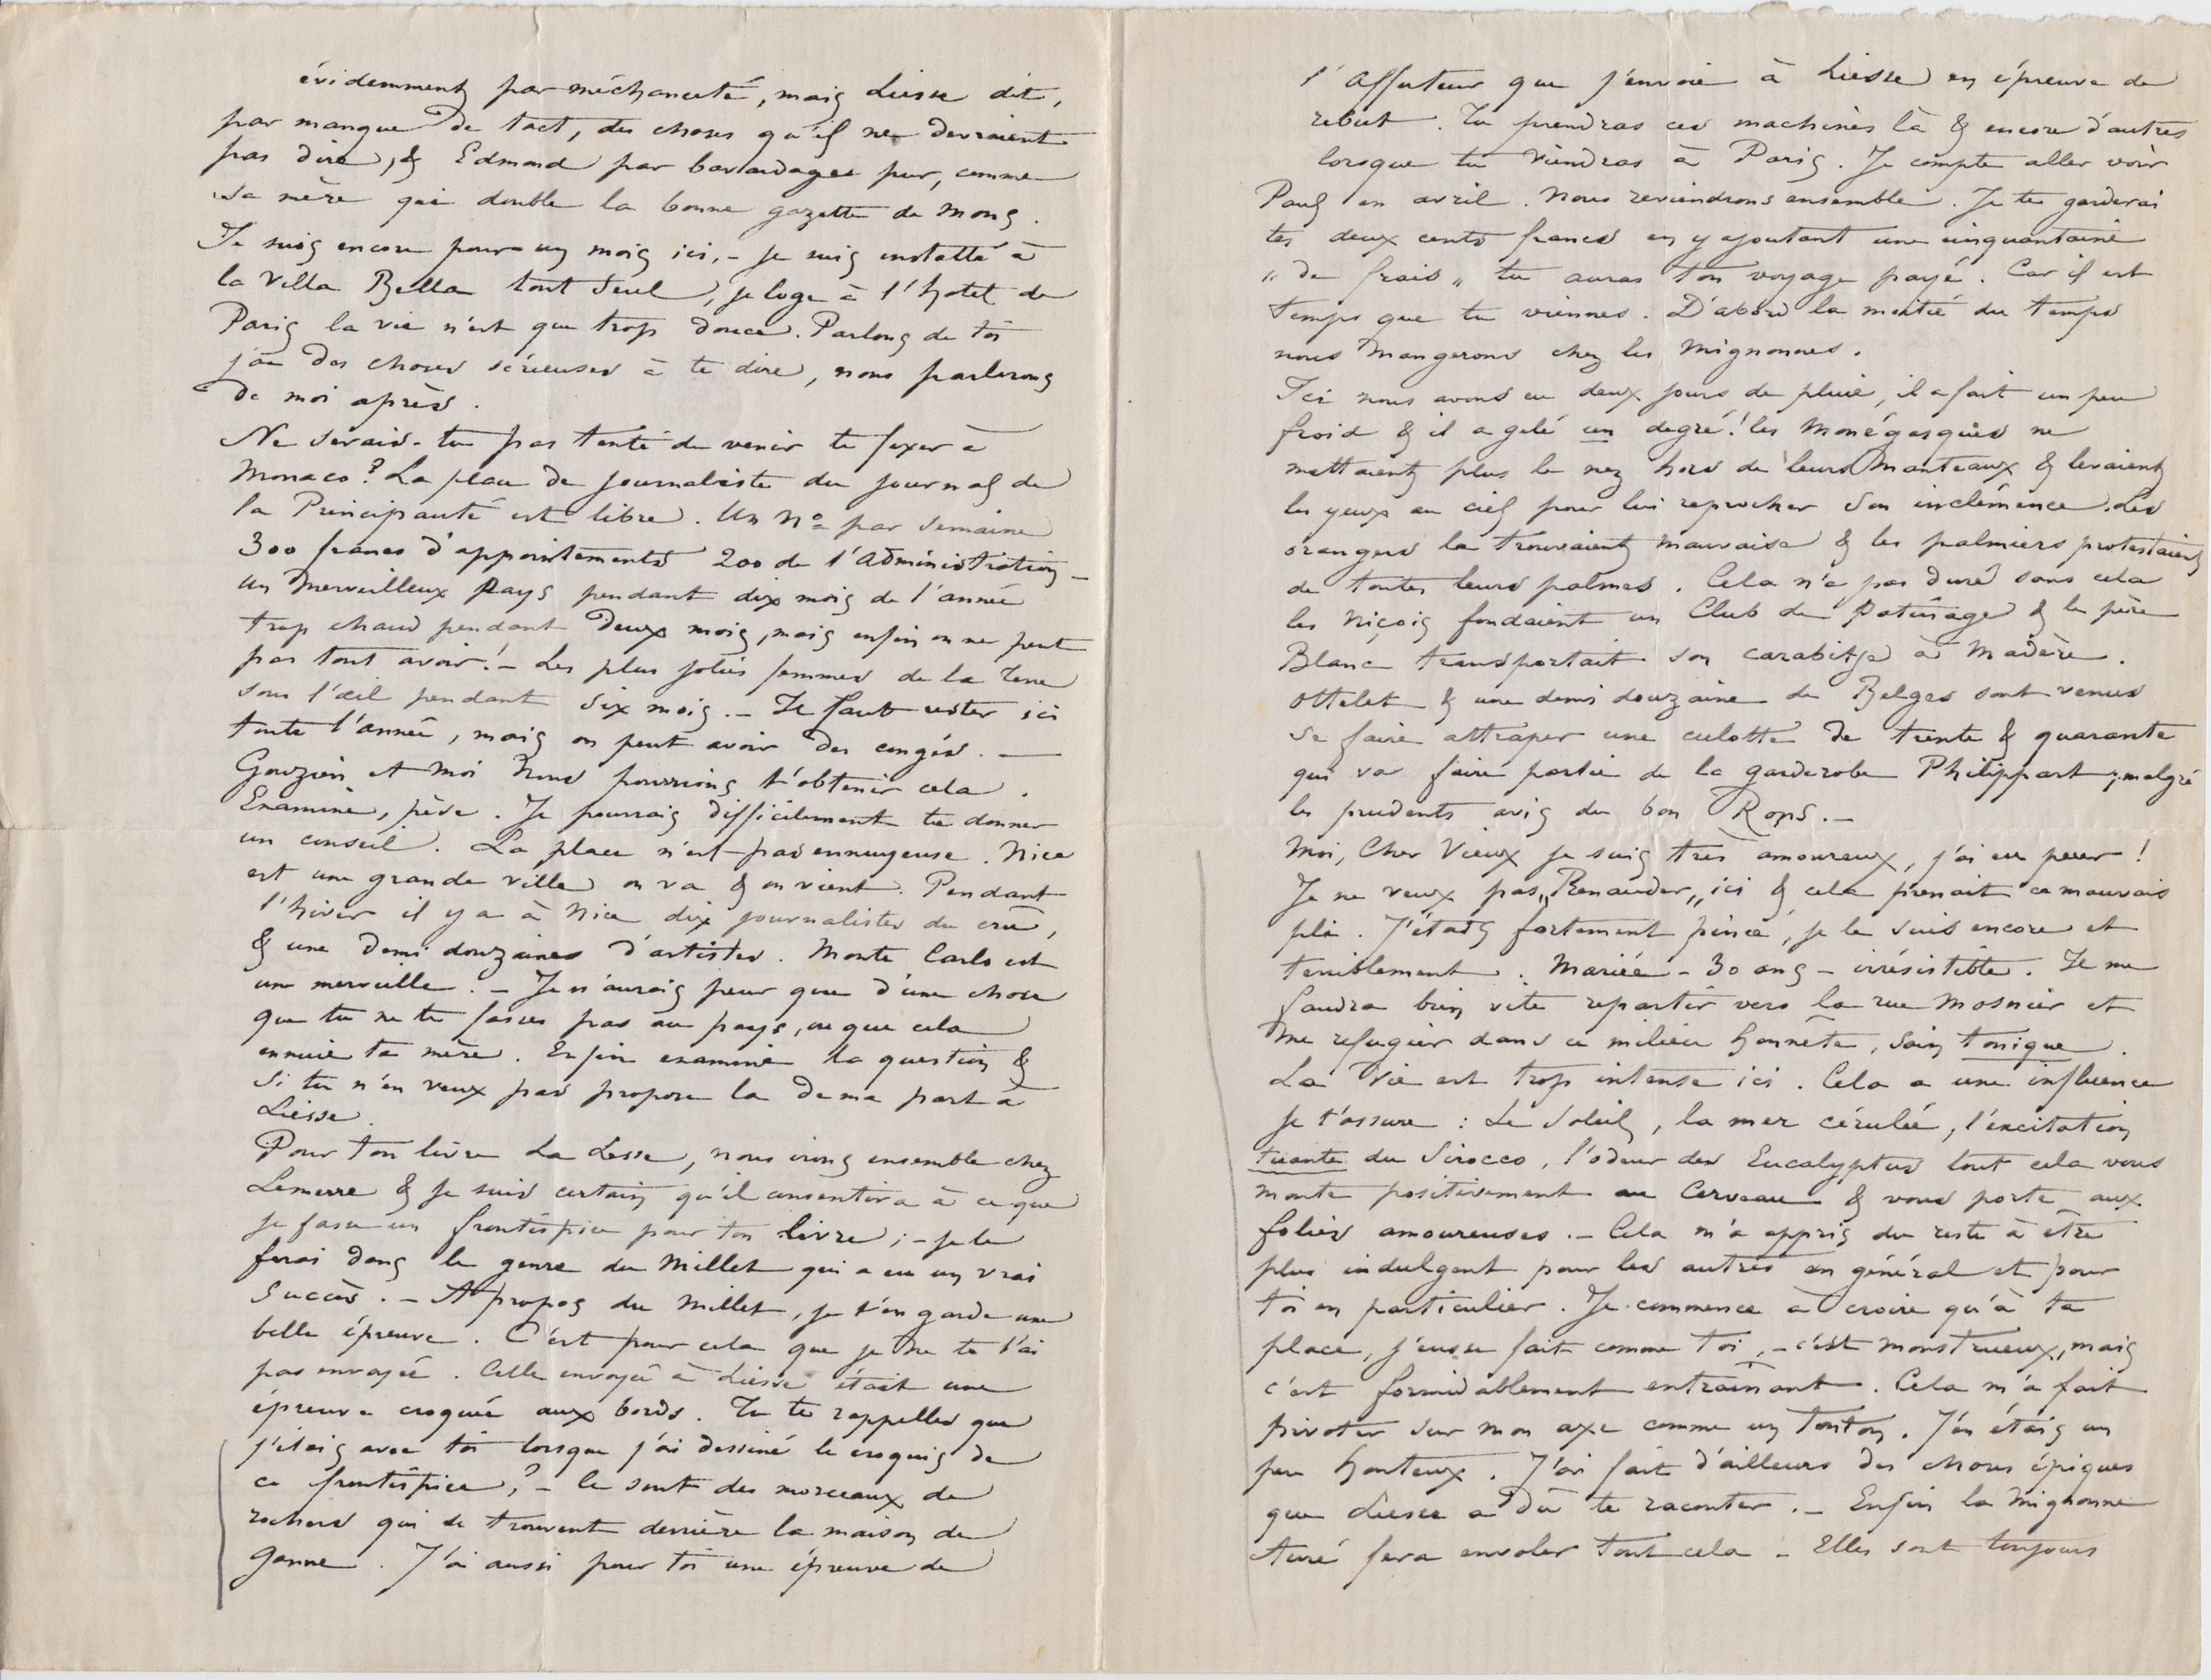 évidemment par méchanceté, mais Liesse dit,
par manque de tact, des choses qu'il ne devraient
pas dire, & Edmond par bavardages pur, comme
sa mère qui double la bonne gazette de Mons.
Je suis encore pour un mois ici, – je suis installé à
la Villa Bella tout seul, je loge à l'hotel de
Paris la vie n'est que trop douce. Parlons de toi
j'ai des choses sérieuses à te dire, nous parlerons
de moi après.
Ne serais-tu pas tenté de venir te fixer à
Monaco? La place de journaliste du journal de
la Principauté est libre. Un no par semaine
300 francs d'appointements 200 de l'Administration –
un merveilleux pays pendant dix mois de l'année
trop chaud pendant deux mois, mais enfin on ne peut
pas tout avoir! – Les plus jolies femmes de la terre
sous l'œil pendant six mois. – Il faut rester ici
toute l'année, mais on peut avoir des congés. —
Gouzien et moi nous pourrions t'obtenir cela.
Examine, pèse. Je pourrais difficilement te donner
un conseil. La place n'est pas ennuyeuse. Nice
est une grande ville on va & on vient. Pendant
l'hiver il y a à Nice dix journalistes du crû,
& une demi douzaines d'artistes. Monte Carlo est
une merveille. – Je n'aurais peur que d'une chose
que tu ne te fasses pas au pays, ou que cela
ennuie ta mère. Enfin examine la question &
si tu n'en veux pas propose la de ma part à
Liesse.
Pour ton livre La Lesse, nous irons ensemble chez
Lemerre & je suis certain qu'il consentira à ce que
je fasse un frontispice pour ton livre; – je le
ferai dans le genre du Millet qui a eu un vrai
succès. – A propos du Millet, je t'en garde une
belle épreuve. C'est pour cela que je ne te l'ai
pas envoyée. Celle envoyée à Liesse était une
épreuve croquée aux bords. Tu te rappelles que
j'étais avec toi lorsque j'ai dessiné le croquis de
ce frontispice,? – ce sont des morceaux de
rochers qui se trouvent derrière la maison de
Ganne. J'ai aussi pour toi une épreuve de
l'Affuteur que j'envoie à Liesse en épreuve de
rebut. Tu prendras ces machines là & encore d'autres
lorsque tu viendras à Paris. Je compte aller voir
Paul en avril. Nous reviendrons ensemble. Je te garderai
tes deux cents francs en y ajoutant une cinquantaine
„ de frais „ tu auras ton voyage payé. Car il est
temps que tu viennes. D'abord la moitié du temps
nous mangerons chez les Mignonnes.
Ici nous avons eu deux jours de pluie, il a fait un peu
froid & il a gelé un degré! les Monégasques ne
mettaient plus le nez hors de leurs manteaux & levaient
les yeux au ciel pour lui reprocher son inclémence. Les
orangers la trouvaient mauvaise & les palmiers protestaient
de toutes leurs palmes. Cela n'a pas duré sans cela
les Niçois fondaient un Club de Patinage & le père
Blanc transportait son carabitje à Madère.
Ottelet & une demi douzaine de Belges sont venus
se faire attraper une culotte de trente & quarante
qui va faire partie de la garderobe Philippart, malgré
les prudents avis du bon Rops. –
Moi, Cher Vieux je suis très amoureux, j'ai eu peur!
Je ne veux pas „Renauder„ ici & cela prenait ce mauvais
pli. J'étais fortement pincé, je le suis encore et
terriblement. Mariée – 30 ans – irrésistible. Il me
faudra bien vite repartir vers la rue Mosnier et
me refugier dans ce milieu honnête, sain tonique.
La Vie est trop intense ici. Cela a une influence
je t'assure: Le Soleil, la mer cérulée, l'excitation
tuante du Sirocco, l'odeur des Eucalyptus tout cela vous
monte positivement au Cerveau & vous porte aux
folies amoureuses. – Cela m'a appris du reste à être
plus indulgent pour les autres en général et pour
toi en particulier. Je commence à croire qu'à ta
place, j'eusse fait comme toi, – c'est monstrueux, mais
c'est formidablement entrainant. Cela m'a fait
pivoter sur mon axe comme un tonton. J'en étais un
peu honteux. J'ai fait d'ailleurs des choses épiques
que Liesse a dû te raconter. – Enfin la mignonne
Auré fera envoler tout cela – Elles sont toujours